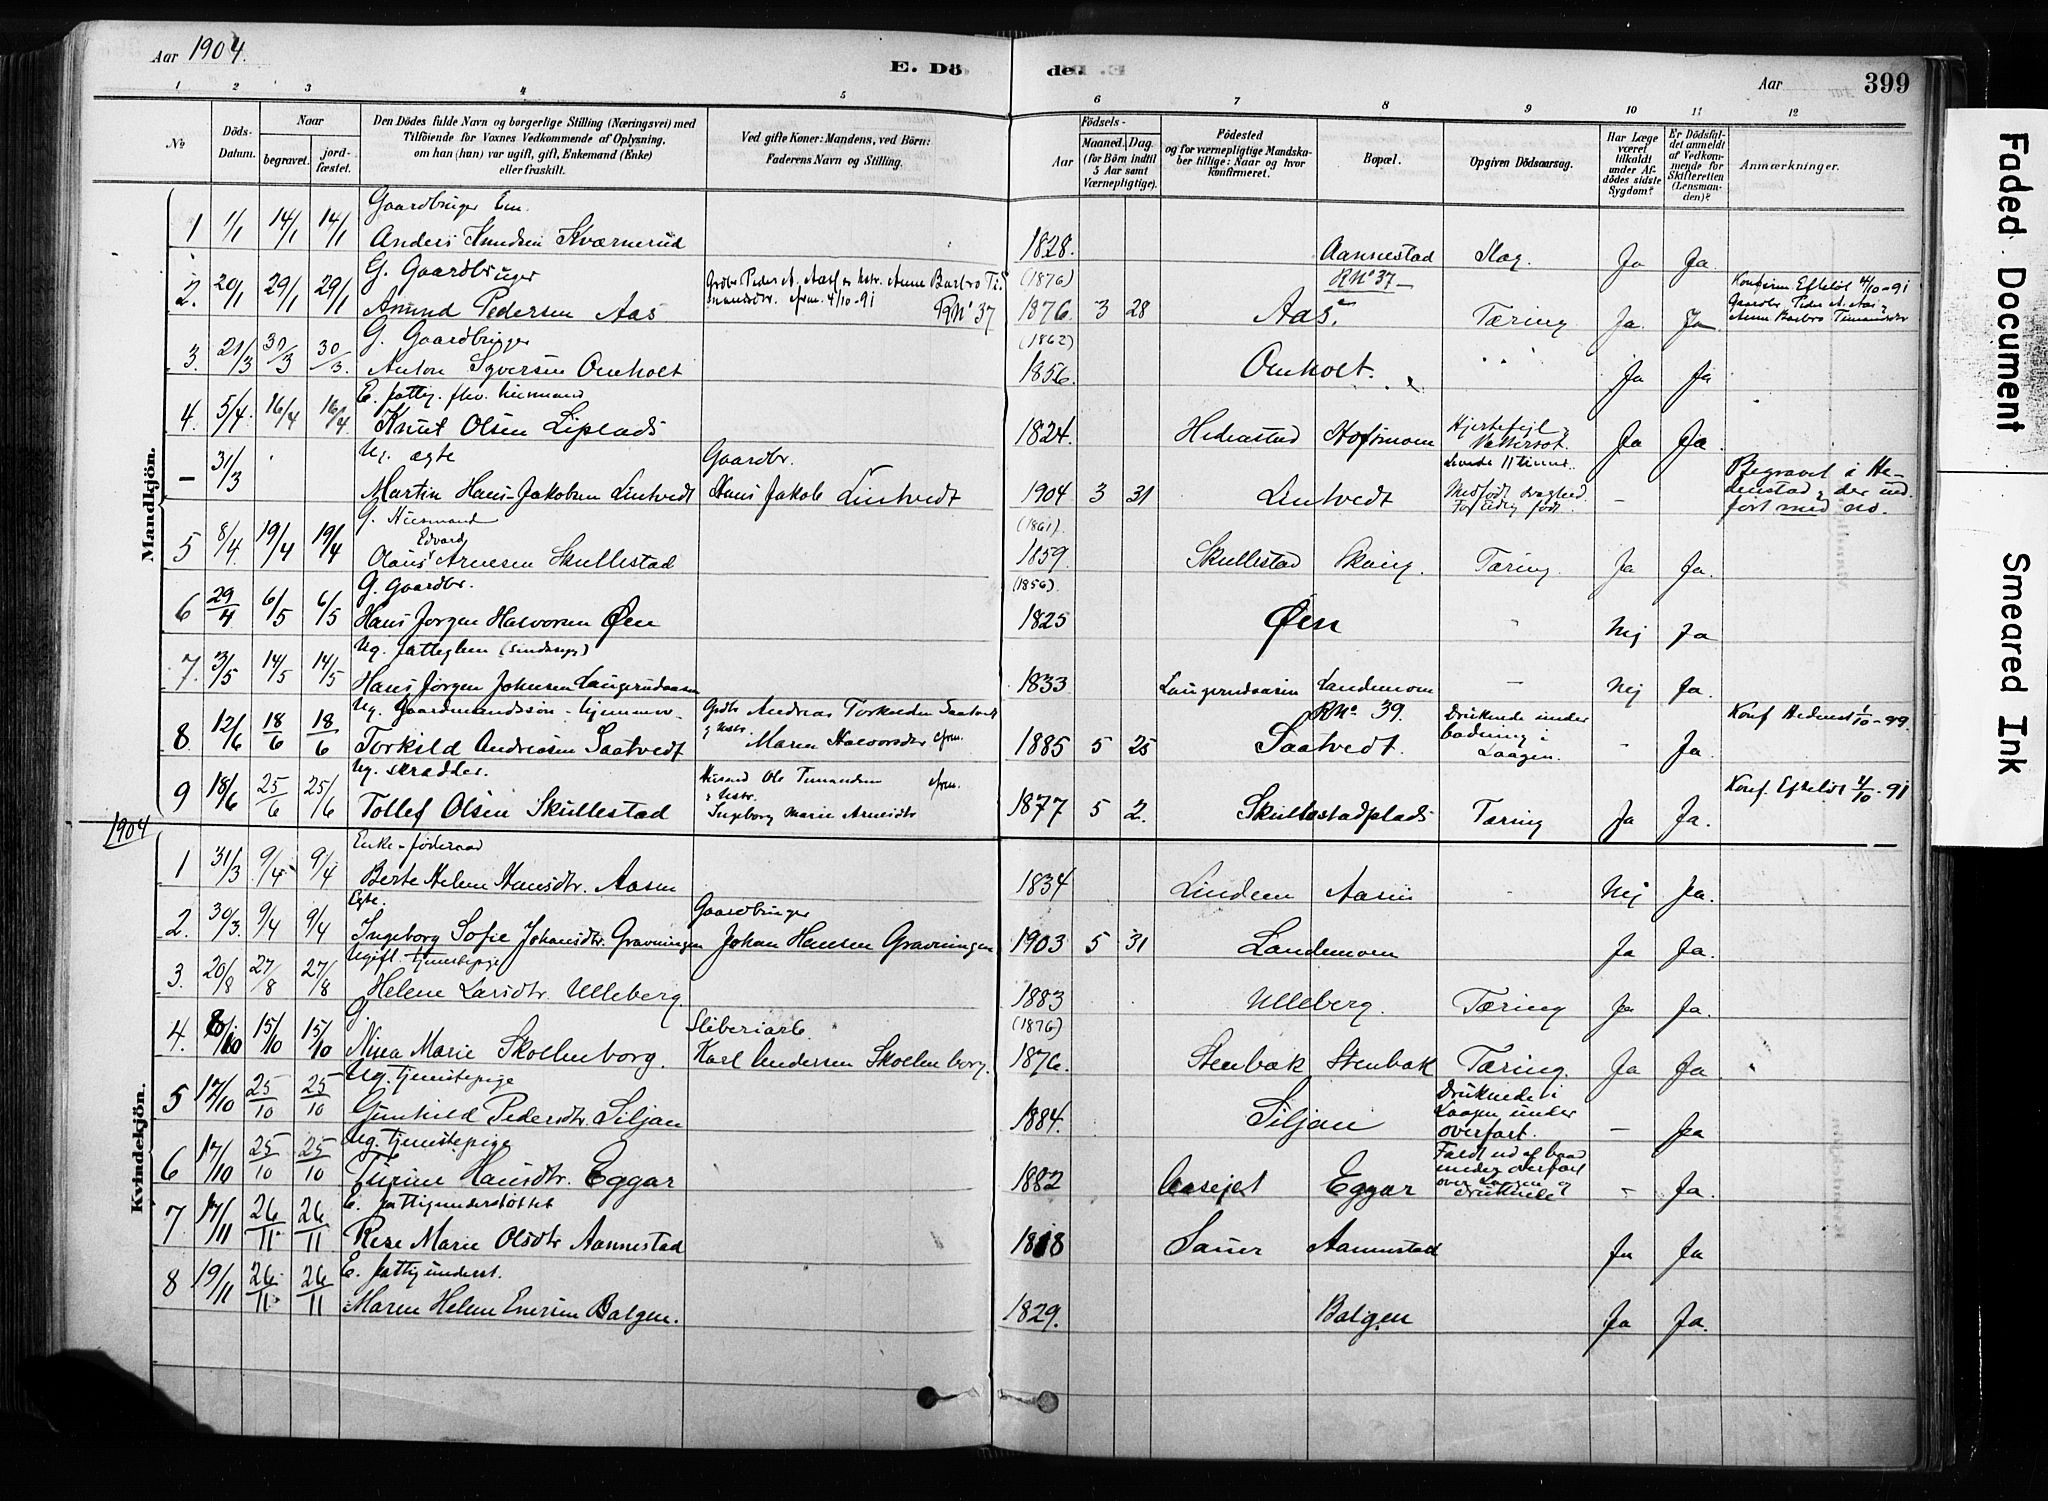 Aar 1904.
E. Dö de.
Aar 399
1 2 3 4 5 6 7 8 9 10 11 12
№
Döds-Datum.
Naar
begravet.
jord-fæstet.
Den Dödes fulde Navn og borgerlige Stilling (Næringsvei) med
Tilföiende for Voxnes Vedkommende af Oplysning,
om han (hun) var ugift, gift, Enkemand (Enke)
eller fraskilt.
Ved gifte Koner: Mandens, ved Börn:
Faderens Navn og Stilling.
Födsels-
Aar
Maaned. Dag.
(for Börn indtil
5 Aar samt
Værnepligtige).
Födested
og for værnepligtige Mandska-
ber tillige: Naar og hvor
konfirmeret.
Bopæl.
Opgiven Dödsaarsag.
Har Læge
været
tilkaldt
under Af-
dödes sidste
Sygdom?
Er Dödsfal-
det anmeldt
af Vedkom-
mende for
Skifteretten
(Lensman-
den)?
Anmærkninger.
Mandkjön.
Gaardbruger Em.
1 1/1 14/1 14/1 Anders Knudsen Kværnerud 1828. Aannestad Slag. Ja Ja.
G. Gaardbruger (1876) RN° 37
2. 20/1 29/1 29/1 Amund Pedersen Aas RN° 37 1876. 3 28 Aas. Tæring Ja. Ja
G. Gaardbruger (1862)
3. 21/3 30/3 30/3. Anton Syversen Omholt 1856. Omholt. " " Ja Ja
E. fattig. fhv. husmand
4. 5/4. 16/4 16/4. Knut Olsen Liplads 1824. Hedenstad Hofsmoen Hjertefejl Vattersot. Ja Ja.
Ug. ægte Gaardbr. Levede 11 timer.
– 31/3 Martin Hans-Jakobsen Lintvedt Hans Jakob Lintvedt 1904 3 31 Lintvedt Medfødt svaghed. For tidlig født. – Begravet i Hedenstad, der indført med no.
G. Husmand (1861).
5 8/4. 19/4 19/4 Olaus Edvard Arnesen Skullestad 1859 Skullestad Skoug. Tæring. Ja Ja.
G. Gaardbr. (1856)
6 29/4 6/5 6/5 Hans Jørgen Halvorsen Øen 1825 Øen " Nej Ja
Ug. fattiglem (sindssyg)
7. 3/5 14/5 14/5 Hans Jørgen Johnsen Laugerudaasen 1833 Laugerudaasen Landemoen – Nej Ja.
Ug. Gaardmandssøn - hjemmev. RN° 39.
8. 12/6 18/6 18/6 Torkild Andreasen Saatvedt Maren Halvorsdtr 1885 5 25 Saatvedt. Druknede under badning i Laagen. – Ja. Konf Hedenst 1/10-99.
Ug. skrædder. Husmd Ole Timandsen
9 18/6 25/6 25/6 Tollef Olsen Skullestad Ingeborg Marie Arnesdtr 1877 5 2. Skullestadplads Tæring Ja Ja. Konf. Efteløt 4/10-91
1904
Kvindekjön.
Enke - føderaad
1 31/3 9/4 9/4 Berte Helene Hansdtr. Aasen 1834 Lindeen Aasen Nej Ja.
Egte. Gaardbruger
2. 30/3. 9/4 9/4 Ingeborg Sofie Johansdtr. Gravningen Johan Hansen Gravningen 1903 5 31 Landemoen Ja Ja.
Ugift. Tjenestepige
3. 20/8 27/8 27/8 Helene Larsdtr. Ulleberg 1883 Ulleberg. Tæring Ja Ja.
G. Sliberiarb. (1876)
4. 8/10 15/10 15/10 Nina Marie Skollenborg. Karl Andersen Skollenborg. 1876. Stenbak Stenbak Tæring. Ja Ja
Ug. Tjenestepige
5 17/10 25/10 25/10 Gunhild Pedersdtr. Siljan 1884. Siljan Druknede i Laagen, under overfart. – Ja
Ug. Tjenestepige
6 17/10 25/10 25/10 Hansdtr. Eggar 1882 Eggar Faldt ud af baad under overfart over Laagen og druknede – Ja.
E. fattigunderstøttet
7. 17/11 26/11 26/11 Marie Olsdtr Aannestad 1818 Aannestad Ja Ja
E. fattigunderst.
8 19/11 26/11 26/11 Maren Helene Enersen Bolgen. 1829. Bolgen Ja Ja.
Faded Document
Smeared Ink